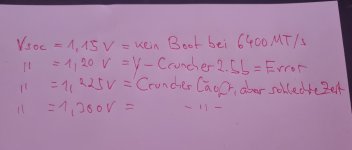 Vsoc = 1,15V = kein Boot bei 6400MT/s
" = 1,20 V = Y-Cruncher 2.5b = Error
" = 1,225V = Cruncher läuft, aber schlechte Zeit
" = 1,300V = - " -